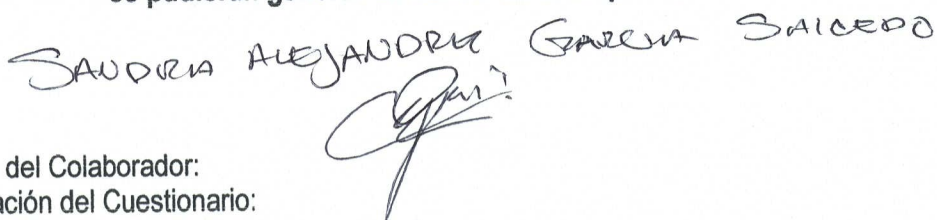 SANDRA ALEJANDRA GARCIA SALCEDO
del Colaborador:
ación del Cuestionario: